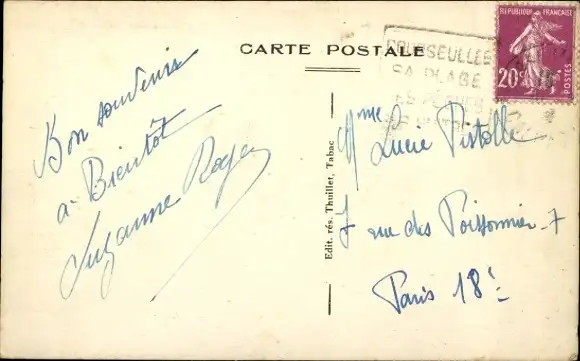 CARTE POSTALE
REPUBLIQUE FRANÇAISE
20c
POSTES
COURSEULLES
SA PLAGE
Bon souvenir
à Bientôt
Suzanne Roger
Edit. rés. Thuillet, Tabac
Mme Lucie Pistolle
7 rue des Poissonnier 7
Paris 18e